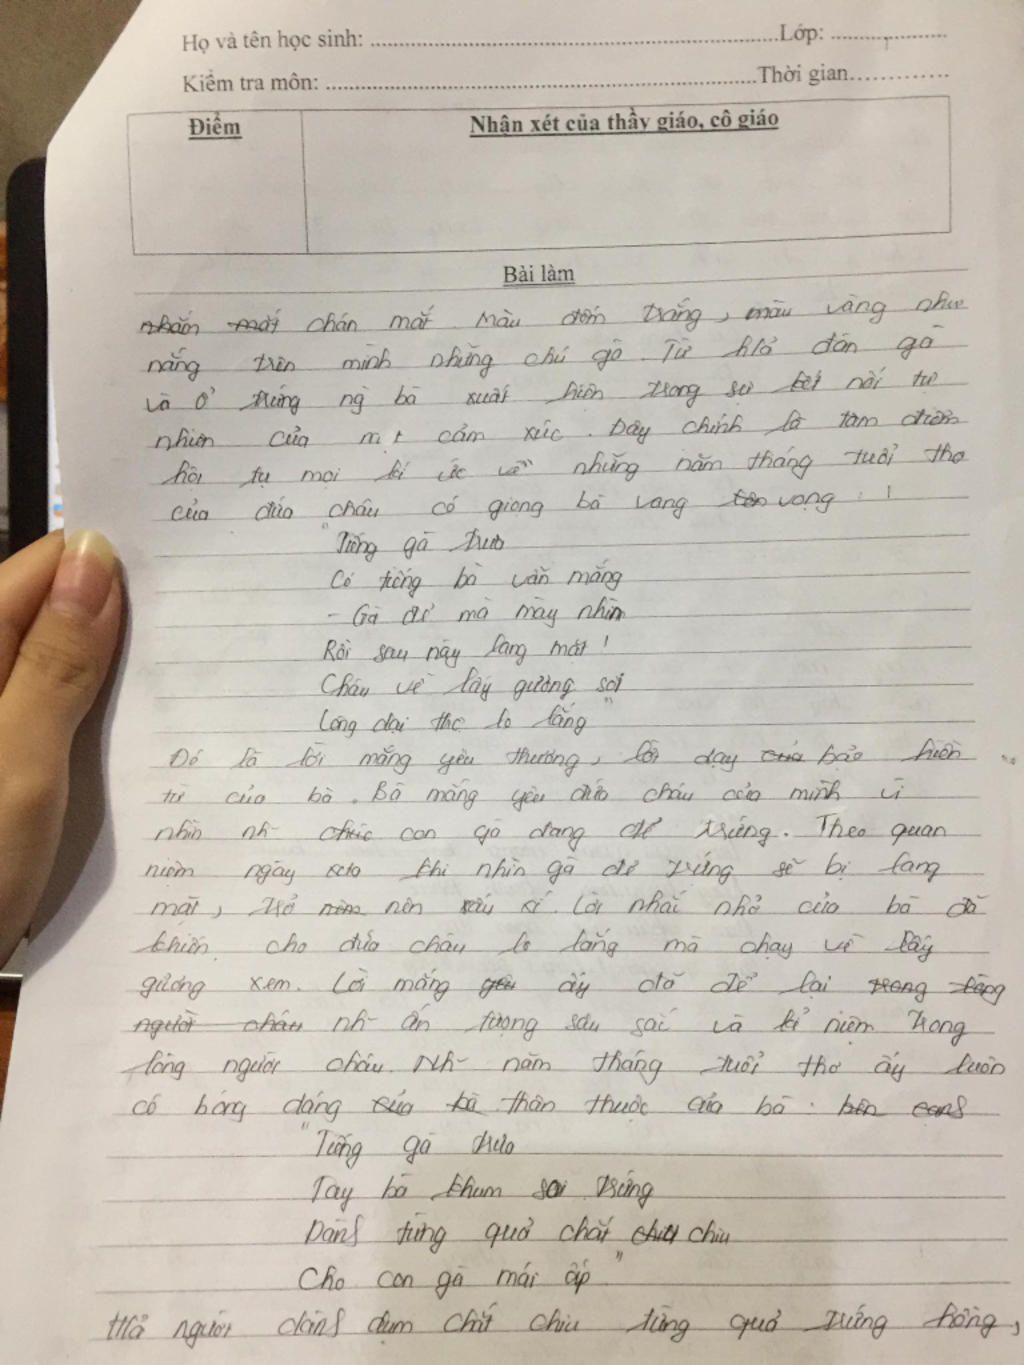 Họ và tên học sinh: ........................................Lớp: ....................
Kiểm tra môn: ........................................Thời gian.............
Điểm
Nhận xét của thầy giáo, cô giáo
Bài làm
chán mắt. Màu đốm trắng, màu vàng như
nắng trên mình những chú gà. Từ đàn gà
và ổ trứng ng bà xuất hiện trong sự kết nối tự
nhiên của cảm xúc. Đây chính là tâm điểm
hội tụ mọi kí ức về những năm tháng tuổi thơ
của đứa cháu có giọng bà vang vọng : !
"Tiếng gà trưa
Có tiếng bà vẫn mắng
- Gà đẻ mà mày nhìn
Rồi sau này lang mặt !
Cháu về lấy gương soi
Lòng dại thơ lo lắng"
Đó là lời mắng yêu thương, lời dạy bảo hiền
từ của bà. Bà mắng yêu đứa cháu của mình vì
nhìn nh~ con gà đang đẻ trứng. Theo quan
niệm ngày xưa khi nhìn gà đẻ trứng sẽ bị lang
mặt, trở nên xấu xí. Lời nhắc nhở của bà đã
khiến cho đứa cháu lo lắng mà chạy về lấy
gương xem. Lời mắng ấy đã để lại trong lòng
người cháu nh~ ấn tượng sâu sắc và kỉ niệm trong
lòng người cháu. Nh~ năm tháng tuổi thơ ấy luôn
có bóng dáng của bà thân thuộc của bà.
"Tiếng gà trưa
Tay bà khum soi trứng
Dành từng quả chắt chiu
Cho con gà mái ấp"
người dành dụm chắt chiu từng quả trứng hồng,